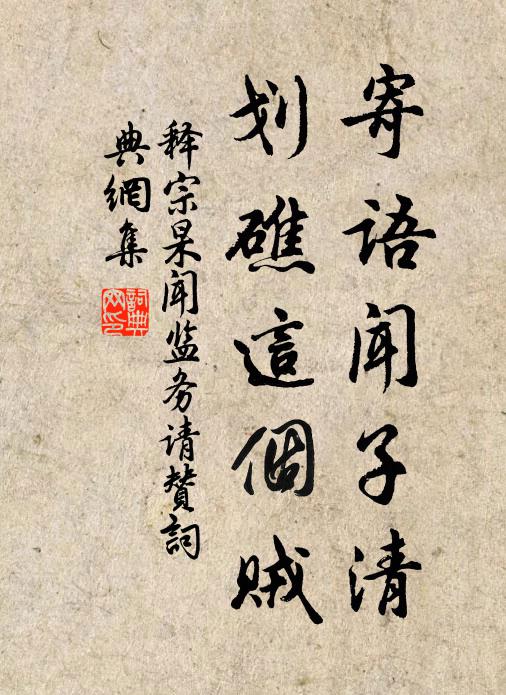 寄语闻子清
划礁這個贼
释宗杲闻监务请赞詞
典網集
詞典
网印